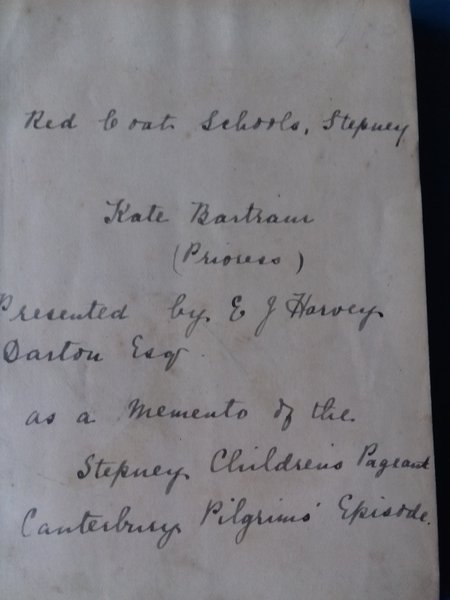 Red Coat Schools, Stepney
Kate Bartram
(Prioress)
Presented by E J Harvey
Darton Esqr.
as a Memento of the
Stepney Children's Pageant
Canterbury Pilgrims' Episode.